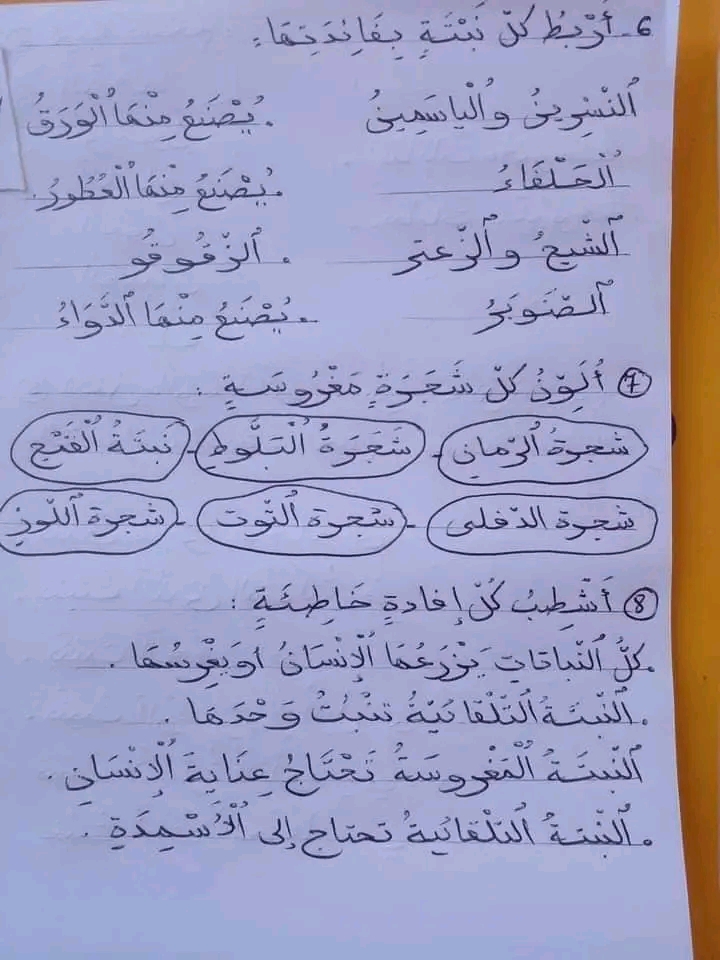 6- أَرْبِطُ كلّ نَبْتَةٍ بِفَائِدَتِهَا:
اُلنّسْرِينُ واُلْياسَمِينُ . يُصْنَعُ مِنْهَا اُلْوَرَقُ
اُلْحَلْفَاءُ . يُصْنَعُ مِنْهَا اُلْعُطُورُ.
اَلشّيحُ واَلزّعتر . اَلزّقُوقُو
اَلصّنَوبَرُ . يُصْنَعُ مِنْهَا اَلدَّوَاءُ
7 أُلَوّنُ كلّ شَجَرَةٍ مَغْرُوسَةٍ :
شجرةُ اُلرّمانِ - شَجَرَةُ اُلْبَلُّوطِ - نَبتَةُ اُلْقَمْحِ
شجرة الدّفلى - شجرة اُلتّوت - شجرة اَللّوزِ
8 أَشْطِبُ كُلّ إفادةٍ خَاطِئَةٍ :
.كلُّ اَلنّباتاتِ يَزْرَعُهَا اُلْإنْسَانُ أو يَغْرِسُهَا .
. اَلنّبتَةُ اُلتّلْقَائيّةُ تنْبُتُ وَحْدَهَا .
اَلنّبتَةُ اُلْمَغْروسَةُ تَحْتَاجُ عِنَايَةَ اُلْإنْسَانِ .
. اَلنّبتةُ اُلتلقائيةُ تحتاج إلى اُلْأَسْمِدَةِ .